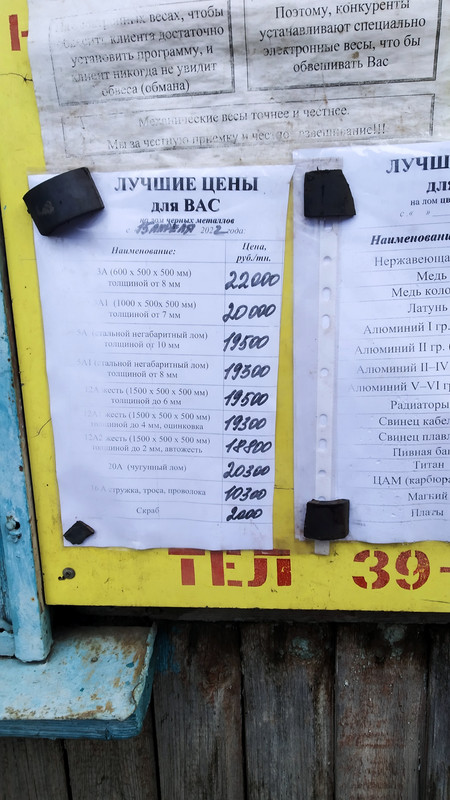 весах, чтобы
клиента достаточно
установить программу, и
клиент никогда не увилит
обвеса (обмана)
Поэтому, конкуренты
устачавливают специально
электронные весы, что бы
обвешивать Вас
Механические весы точнее и честнее.
Мы за честную приемку и честное взвешивание!!!
ЛУЧШИЕ ЦЕНЫ
для ВАС
на лом черных металлов
с 15 АПРЕЛЯ 2022 года
Наименование: Цена, руб./тн.
3А (600 х 500 х 500 мм)
толщиной от 8 мм 22000
(1000 х 500х 500 мм)
толщиной от 7 мм 20000
негабаритный лом)
толщиной от 10 мм 19500
негабаритный лом)
толщиной от 8 мм 19300
12А жесть (1500 х 500 х 500 мм)
толщиной до 6 мм 19500
12А1 жесть (1500 х 500 х 500 мм)
толщиной до 4 мм, оцинковка 19300
12А2 жесть (1500 х 500 х 500 мм)
толщиной до 2 мм, автожесть 18800
20А (чугунный лом) 20300
16А стружка, троса, проволока 10300
Скраб 2000
ЛУЧШ
для
на лом цв
с «
Наименовани
Нержавеюща
Медь
Медь коло
Латунь
Алюминий I гр.
Алюминий II гр.
Алюминий II–IV
Алюминий V–VI г
Радиаторы
Свинец кабе
Свинец плав
Пивная бан
Титан
ЦАМ (карбюра
Магний
Платы
ТЕЛ 39-